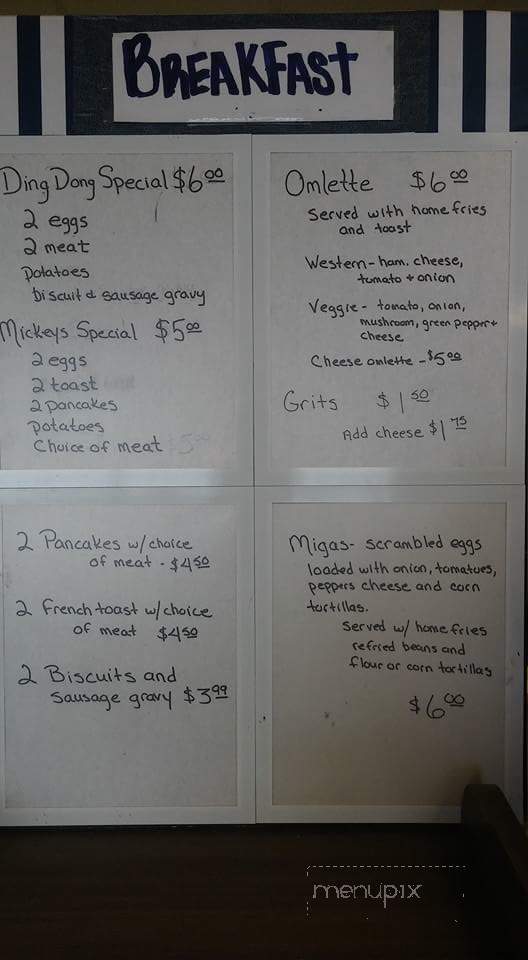 BREAKFAST
Ding Dong Special $6.00
2 eggs
2 meat
potatoes
biscuit & sausage gravy
Mickeys Special $5.00
2 eggs
2 toast
2 pancakes
potatoes
Choice of meat
Omlette $6.00
Served with homefries
and toast
Western - ham, cheese,
tomato + onion
Veggie - tomato, onion,
mushroom, green pepper +
cheese
Cheese omlette - $5.00
Grits $1.50
Add cheese $1.75
2 Pancakes w/choice
of meat - $4.50
2 French toast w/choice
of meat $4.50
2 Biscuits and
Sausage gravy $3.99
Migas - scrambled eggs
loaded with onion, tomatoes,
peppers cheese and corn
tortillas.
Served w/ homefries
refried beans and
flour or corn tortillas
$6.00
menupix